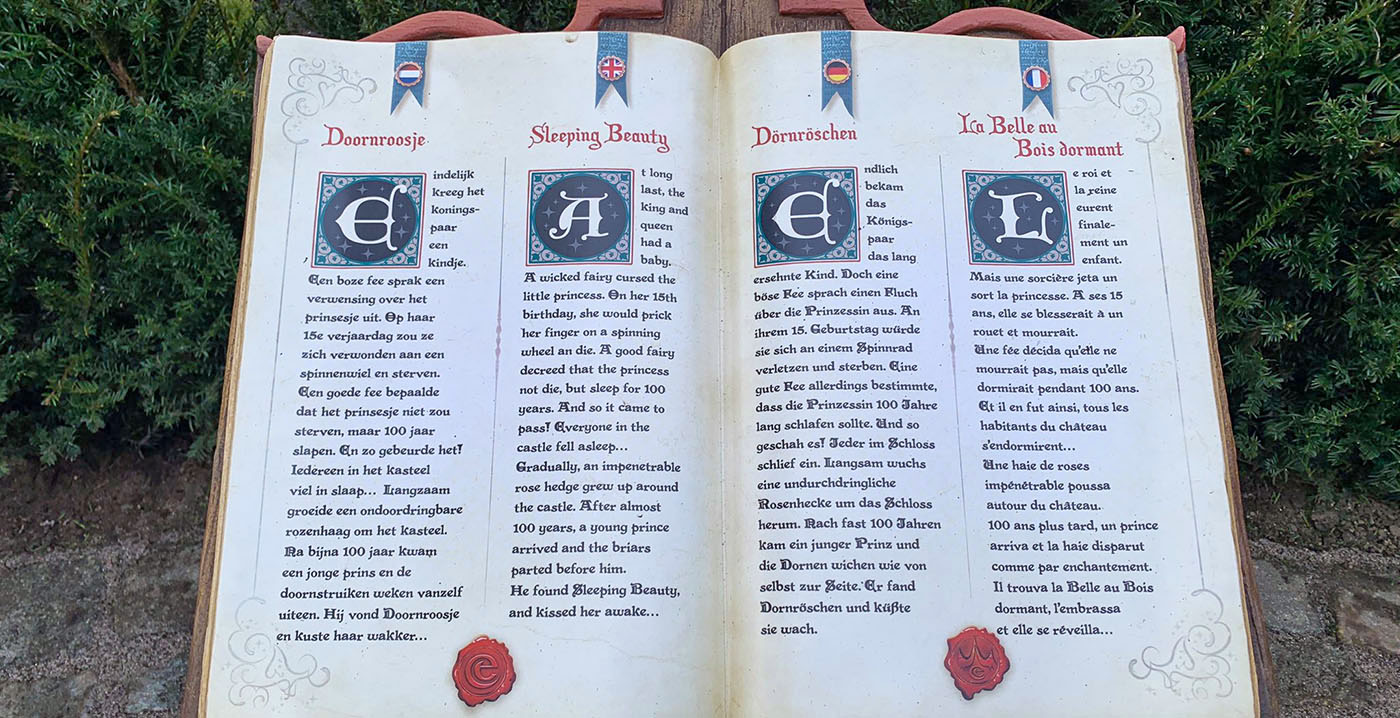 Doornroosje
Eindelijk
kreeg het
konings-
paar
een
kindje.
Een boze fee sprak een
verwensing over het
prinsesje uit. Op haar
15e verjaardag zou ze
zich verwonden aan een
spinnenwiel en sterven.
Een goede fee bepaalde
dat het prinsesje niet zou
sterven, maar 100 jaar
slapen. En zo gebeurde het!
Iedereen in het kasteel
viel in slaap... Langzaam
groeide een ondoordringbare
rozenhaag om het kasteel.
Na bijna 100 jaar kwam
een jonge prins en de
doornstruiken weken vanzelf
uiteen. Hij vond Doornroosje
en kuste haar wakker...
Sleeping Beauty
At long
last, the
king and
queen
had a
baby.
A wicked fairy cursed the
little princess. On her 15th
birthday, she would prick
her finger on a spinning
wheel an die. A good fairy
decreed that the princess
not die, but sleep for 100
years. And so it came to
pass! Everyone in the
castle fell asleep...
Gradually, an impenetrable
rose hedge grew up around
the castle. After almost
100 years, a young prince
arrived and the briars
parted before him.
He found Sleeping Beauty,
and kissed her awake...
Dörnröschen
Endlich
bekam
das
Königs-
paar
das lang
ersehnte Kind. Doch eine
böse Fee sprach einen Fluch
über die Prinzessin aus. An
ihrem 15. Geburtstag würde
sie sich an einem Spinnrad
verletzen und sterben. Eine
gute Fee allerdings bestimmte,
dass die Prinzessin 100 Jahre
lang schlafen sollte. Und so
geschah es! Jeder im Schloss
schlief ein. Langsam wuchs
eine undurchdringliche
Rosenhecke um das Schloss
herum. Nach fast 100 Jahren
kam ein junger Prinz und
die Dornen wichen wie von
selbst zur Seite. Er fand
Dornröschen und küßte
sie wach.
La Belle au
Bois dormant
Le roi et
la reine
eurent
finale-
ment un
enfant.
Mais une sorcière jeta un
sort la princesse. A ses 15
ans, elle se blesserait à un
rouet et mourrait.
Une fée décida qu'elle ne
mourrait pas, mais qu'elle
dormirait pendant 100 ans.
Et il en fut ainsi, tous les
habitants du château
s'endormirent...
Une haie de roses
impénétrable poussa
autour du château.
100 ans plus tard, un prince
arriva et la haie disparut
comme par enchantement.
Il trouva la Belle au Bois
dormant, l'embrassa
et elle se réveilla...